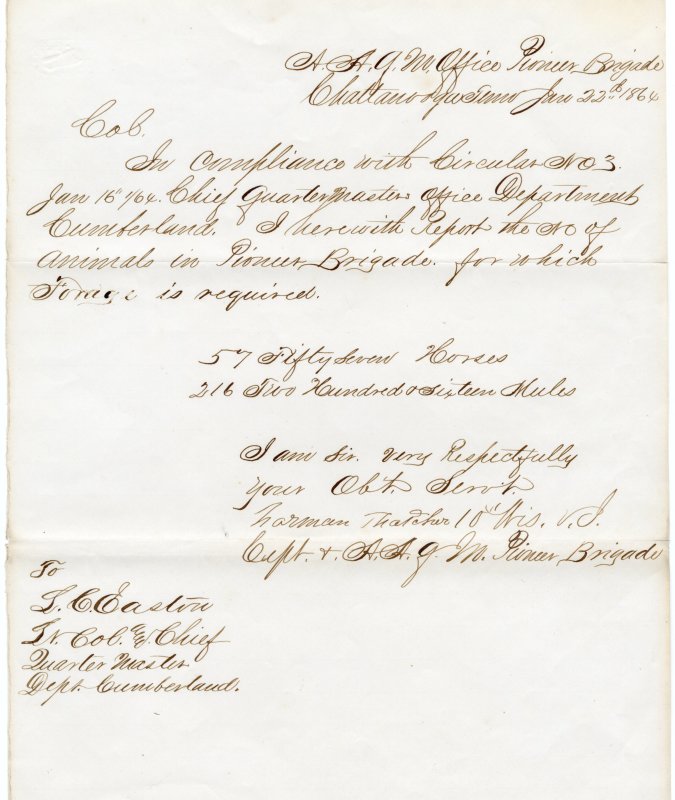 A. A. Q. M. Office Pioneer Brigade
Chattanooga Tenn Jan 22d 1864
Col.
In compliance with Circular No 3.
Jan 16" /64. Chief Quartermasters Office Department
Cumberland. I herewith Report the No of
Animals in Pioneer Brigade. for which
Forage is required.
57 Fifty Seven Horses
216 Two Hundred & Sixteen Mules
I am Sir. very Respectfully
your Obt. Servt.
Harman Thatcher 10" Wis. V. I.
Capt. & A. A. Q. M. Pioneer Brigade
To
L. C. Easton
Lt Col. & Chief
Quarter Master
Dept. Cumberland.